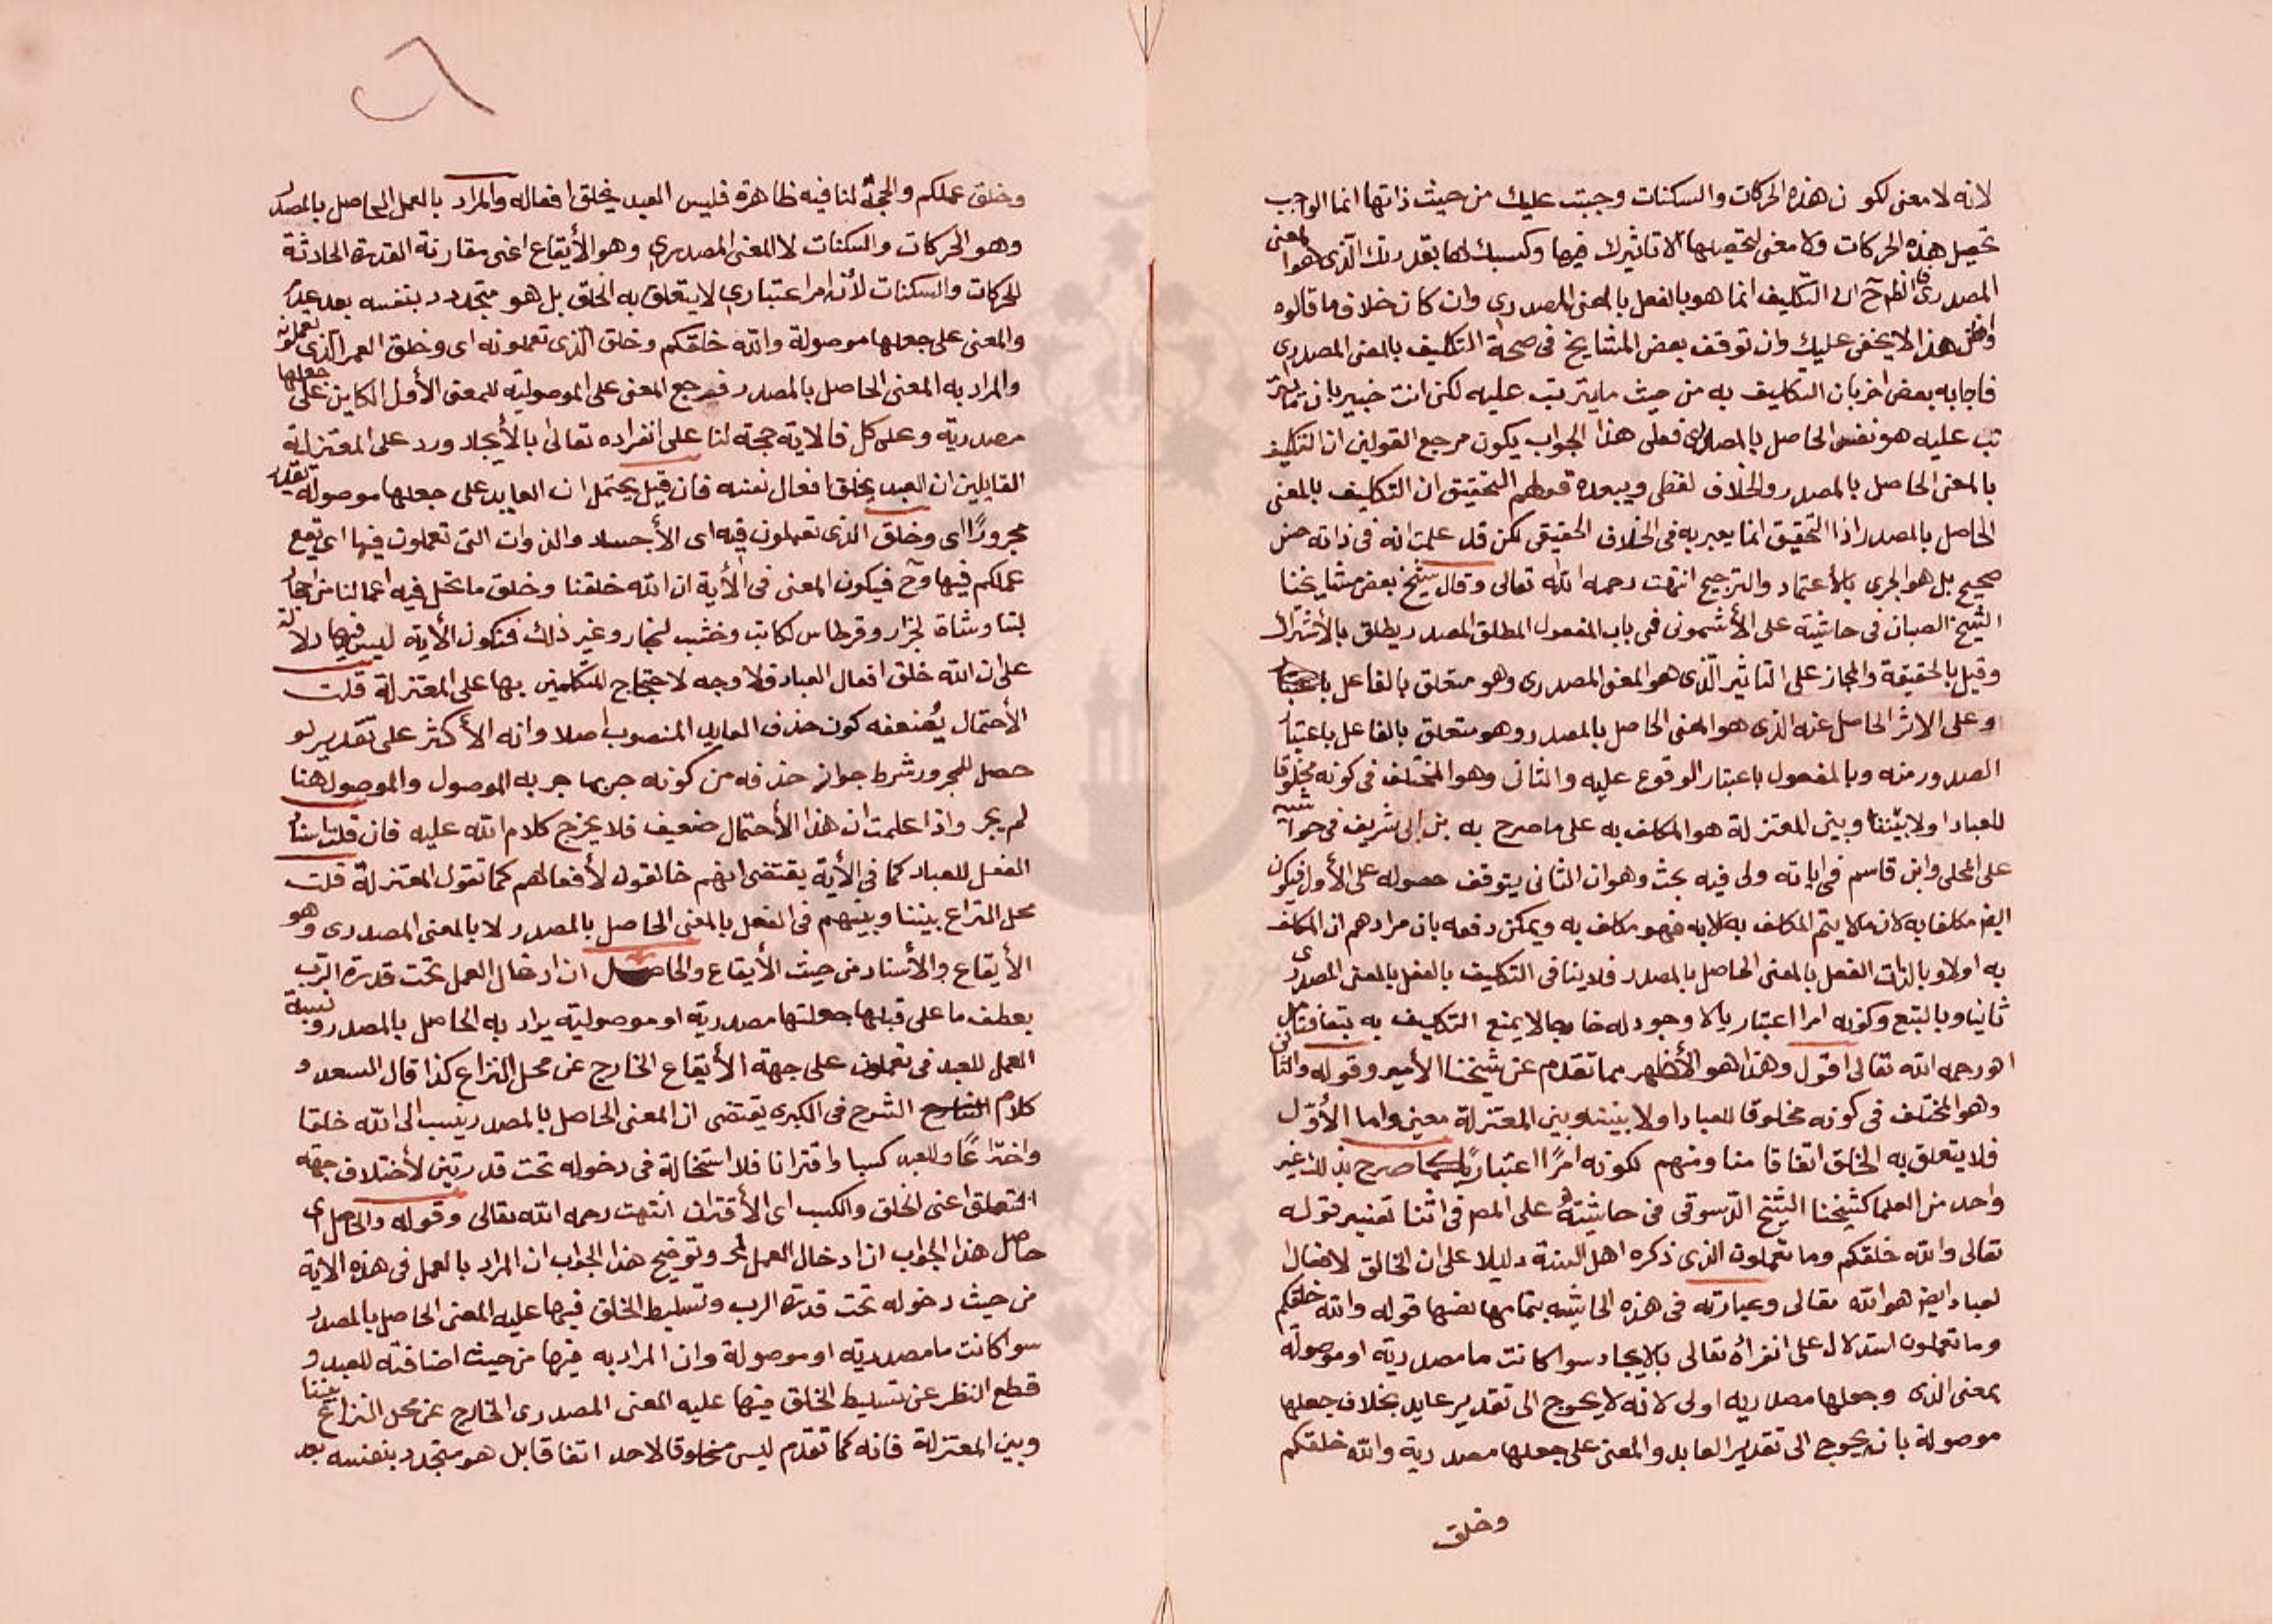 لانه لا معنى لكون هذه الحركات والسكنات وجبت عليك من حيث ذاتها انما الواجب
تحصيل هذه الحركات ولا معنى لتحصيلها الا تاثيرك فيها وكسبك لها بقدرتك الذى هو المعنى
المصدرى فالظـ ح ان التكليف انما هو بالفعل بالمعنى المصدرى وان كان خلاف ما قالوه
هذا لا يخفى عليك وان توقف بعض المشايخ فى صحة التكليف بالمعنى المصدرى
فاجابه بعض اخر بان التكليف به من حيث ما يترتب عليه لكن انت خبير بان ما يتر
تب عليه هو نفس الحاصل بالمصدر فعلى هذا الجواب يكون مرجع القولين ان التكليف
بالمعنى الحاصل بالمصدر والخلاف لفظى ويبعده قولهم التحقيق ان التكليف بالمعنى
الحاصل بالمصدر اذ التحقيق انما يعبر به فى الخلاف الحقيقى لكن قد علمت انه فى ذاته
صحيح بل هو الحرى بالأعتماد والترجيح انتهت رحمه الله تعالى وقال شيخ بعض مشايخنا
الشيخ الصبان فى حاشيته على الأشمونى فى باب المفعول المطلق المصدر يطلق بالأشتراك
وقيل بالحقيقة والمجاز على التاثير الّذى هو المعنى المصدرى وهو متعلق بالفاعل
وعلى الاثر الحاصل عنه الذى هو المعنى الحاصل بالمصدر وهو متعلق بالفاعل باعتبار
الصدور منه وبالمفعول باعتبار الوقوع عليه والثانى وهو المختلف فى كونه مخلوقا
للعباد اولا بيننا وبين المعتزلة هو المكلف به على ما صرح به بن ابى شريف فى حواشيه
على المحلى وابن قاسم فى اياته ولى فيه بحث وهو ان الثانى يتوقف حصوله على الأول فيكون
ايضـ مكلفا به لان ما لا يتم المكلف به الا به فهو مكلف به ويمكن دفعه بان مرادهم ان المكلف
به اولا وبالذات الفعل بالمعنى الحاصل بالمصدر فلا ينافى التكليف بالفعل بالمعنى المصدرى
ثانيا وبالتبع وكونه امرا اعتباريا لا وجود له خارجا لا يمنع التكليف به
اهـ رحمه الله تعالى اقول وهذا هو الأظهر مما تقدم عن شيخنا الأمير وقوله والثانى
وهو المختلف فى كونه مخلوقا للعباد اولا بيننا وبين المعتزلة واما الأول
فلا يتعلق به الخلق اتفاقا منا ومنهم لكونه امرًا اعتباريًا كما صرح بذلك غير
واحد من العلما كشيخنا الشيخ الدّسوقى فى حاشيته على المصـ فى اثنا تفسير قوله
تعالى والله خلقكم وما تعملون الذى ذكره اهل السنة دليلا على ان الخالق لافعال
لعباد ايضـ هو الله تعالى وعبارته فى هذه الحاشية بتمامها نصها قوله والله خلقكم
وما تعملون استدلال على انفراه تعالى بالايجاد سوا كانت ما مصدرية او موصوله
بمعنى الذى وجعلها مصدريه اولى لانه لا يحوج الى تقدير عايد بخلاف جعلها
موصولة بانه يحوج الى تقدير العايد والمعنى على جعلها مصدرية والله خلقكم
وخلق
وخلق عملكم والحجة لنا فيه ظاهرة فليس العبد يخلق افعاله والمراد بالعمل الحاصل بالمصدر
وهو الحركات والسكنات لا المعنى المصدرى وهو الأيقاع اعنى مقارنة القدرة الحادثة
للحركات والسكنات لأنه امر اعتبارى لا يتعلق به الخلق بل هو متجدد بنفسه بعد عدم
والمعنى على جعلها موصولة والله خلقكم وخلق الّذى تعملونه اى وخلق العمل الّذى تعملونه
والمراد به المعنى الحاصل بالمصدر فمرجع المعنى على الموصولية للمعنى الأول الكاين على جعلها
مصدرية وعلى كل فالاية حجة لنا على انفراده تعالى بالأيجاد ورد على المعتزلة
القايلين ان العبد يخلق افعال نفسه فان قيل يحتمل ان العايد على جعلها موصولة يقدر
مجرورًا اى وخلق الذى تعملون فيه اى الأجساد والذوات التى تعملون فيها اى يقع
عملكم فيها وح فيكون المعنى فى الأية ان الله خلقنا وخلق ما تحل فيه اعمالنا من احجار
لبنا وشاة لجزار وقرطاس لكاتب وخشب لنجار وغير ذلك فتكون الأية ليس فيها دلالة
على ان الله خلق افعال العباد فلا وجه لاحتجاج المتكلمين بها على المعتزلة قلت
الأحتمال يُضعفه كون حذف العايد المنصوب اصلا وانه الأكثر على تقدير لو
حصل للمجرور شرط جواز حذفه من كونه جر بما جر به الموصول والموصول هنا
لم يجر واذا علمت ان هذا الأحتمال ضعيف فلا يخرج كلام الله عليه فان قلت اسناد
الفعل للعباد كما فى الأية يقتضى انهم خالقون لأفعالهم كما تقول المعتزلة قلت
محل النزاع بيننا وبينهم فى الفعل بالمعنى الحاصل بالمصدر لا بالمعنى المصدرى وهو
الأيقاع والأسناد من حيث الأيقاع والحاصل ان ادخال العمل تحت قدرة الرب
بعطف ما على قبلها جعلتها مصدرية او موصولية يراد به الحاصل بالمصدر ونسبة
العمل للعبد فى تعملون على جهة الأيقاع الخارج عن محل النزاع كذا قال السعد و
كلام الشرح فى الكبرى يقتضى ان المعنى الحاصل بالمصدر ينسب الى الله خلقا
واختراعًا وللعبد كسبا واقترانا فلا استحالة فى دخوله تحت قدرتين لأختلاف جهه
التعلق اعنى الخلق والكسب اى الأقتران انتهت رحمه الله تعالى وقوله والحاصل اى
حاصل هذا الجواب ان ادخال العمل الخ وتوضيح هذا الجواب ان المراد بالعمل فى هذه الاية
من حيث دخوله تحت قدرة الرب وتسليط الخلق فيها عليه المعنى الحاصل بالمصدر
سوا كانت ما مصدرية او موصولة وان المراد به فيها من حيث اضافته للعبد و
قطع النظر عن تسليط الخلق فيها عليه المعنى المصدرى الخارج عن محل النزاع بيننا
وبين المعتزلة فانه كما تقدم ليس مخلوقا لاحد اتفاقا بل هو متجدد بنفسه بعد